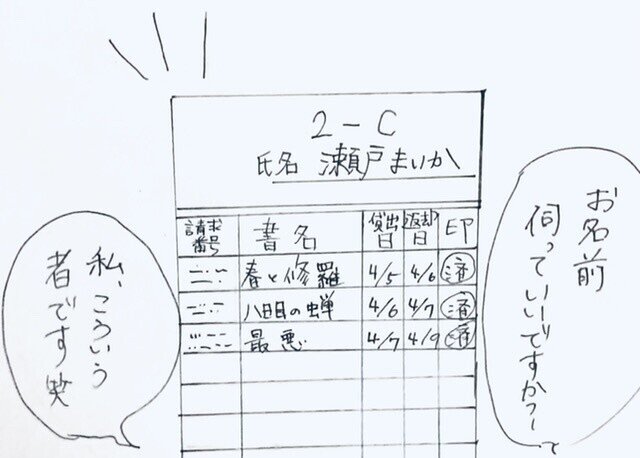 お名前
伺っていいですか?
2-C
氏名 瀬戸まいか
請求番号 書名 貸出日 返却日 印
春と修羅 4/5 4/6 済
八日目の蝉 4/6 4/7 済
最悪 4/7 4/9 済
私、こういう
者です笑